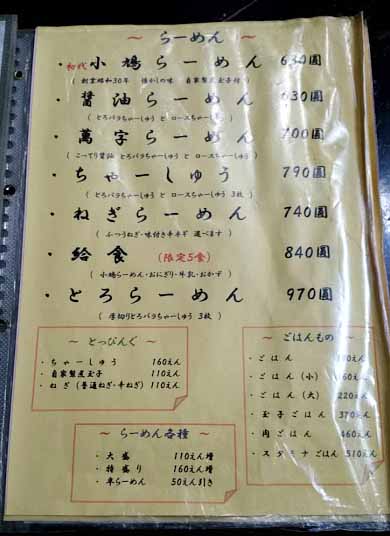 ～ らーめん ～
初代 小鳩らーめん 630圓
（ 創業昭和30年 懐かしの味 自家製煮玉子付 ）
・ 醤油らーめん 630圓
（ とろバラちゃーしゅう と ロースちゃーしゅう ）
・ 萬字らーめん 700圓
（ こってり醤油 とろバラちゃーしゅう と ロースちゃーしゅう ）
・ ちゃーしゅう 790圓
（ とろバラちゃーしゅう と ロースちゃーしゅう 3枚 ）
・ ねぎらーめん 740圓
（ ふつうねぎ・味付き辛ネギ 選べます ）
・ 給食 （限定5食） 840圓
（ 小鳩らーめん・おにぎり・牛乳・おかず ）
・ とろらーめん 970圓
（ 厚切りとろバラちゃーしゅう 3枚 ）
～ とっぴんぐ ～
・ ちゃーしゅう 160えん
・ 自家製煮玉子 110えん
・ ねぎ（普通ねぎ・辛ねぎ） 110えん
～ らーめん各種 ～
・ 大盛 110えん増
・ 特盛り 160えん増
・ 半らーめん 50えん引き
～ ごはんもの ～
・ ごはん
・ ごはん （小）
・ ごはん （大） 220えん
・ 玉子ごはん 370えん
・ 肉ごはん 460えん
・ スタミナごはん 510えん